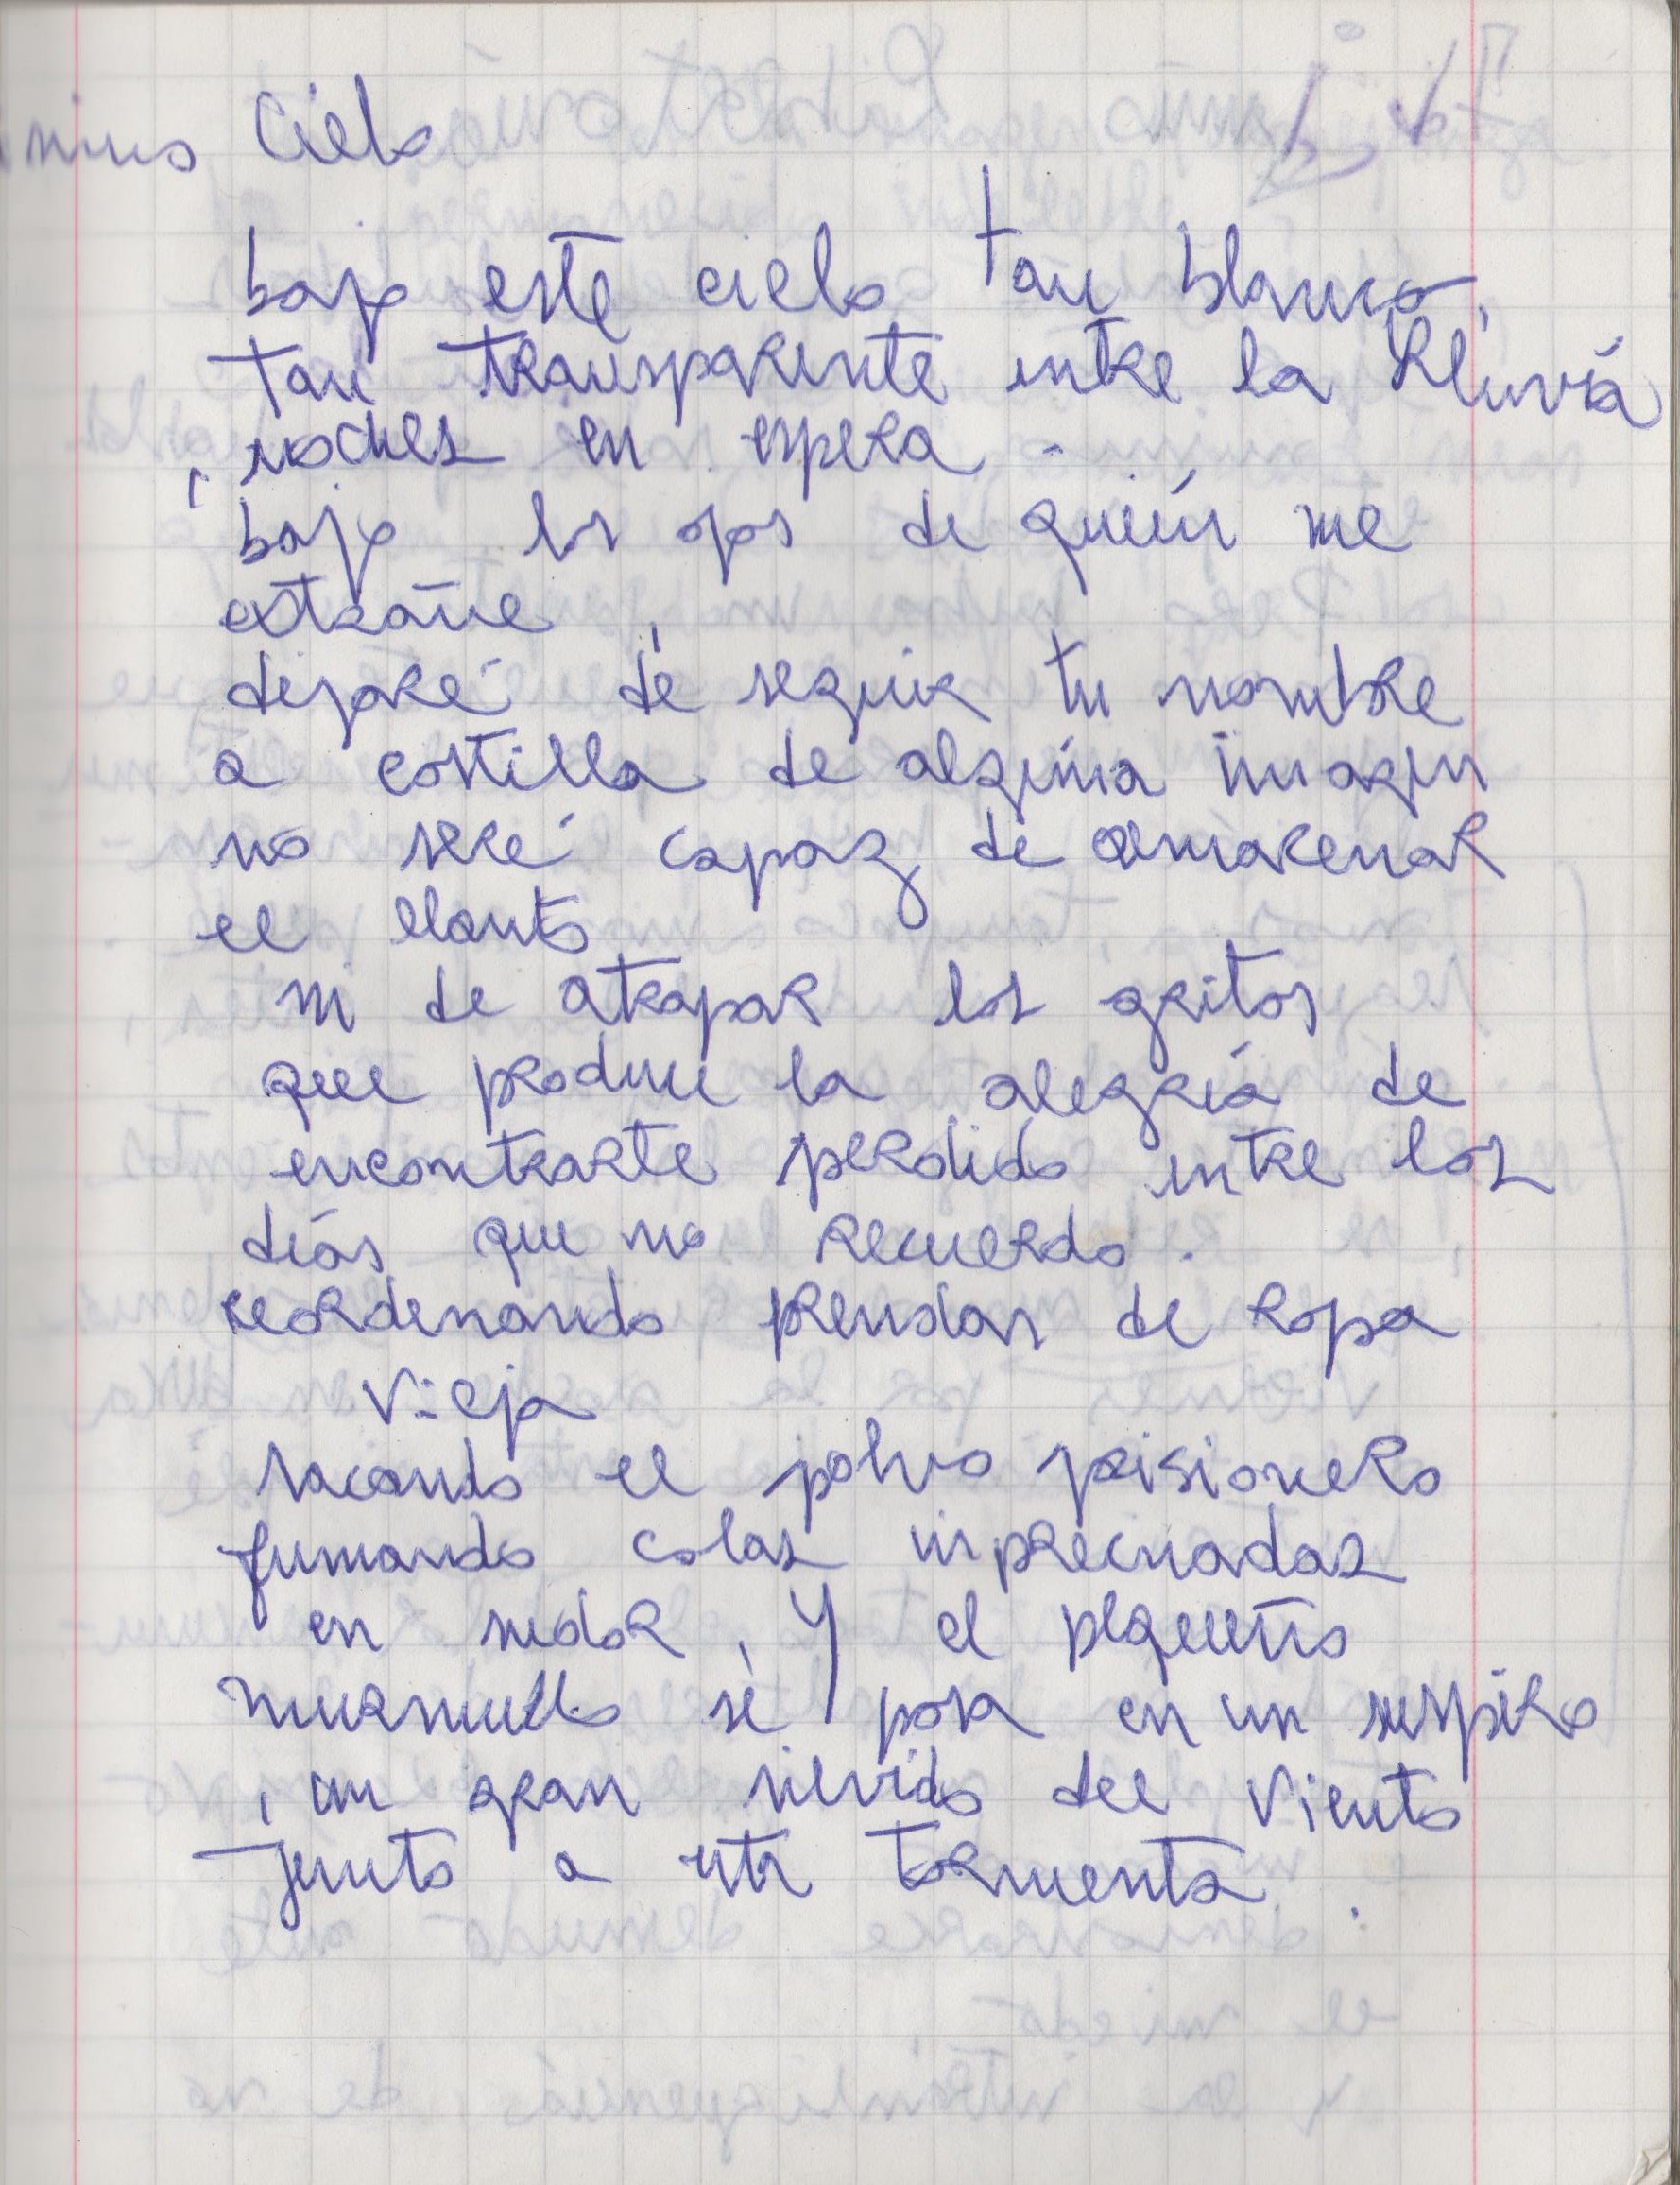 Cielo
bajo este cielo tan blanco,
tan transparente entre la lluvia
, noches en espera.
bajo los ojos de quién me
extrañe,
dejaré de seguir tu nombre
a costilla de alguna imagen
no seré capaz de almacenar
el llanto
ni de atrapar los gritos
que produce la alegría de
encontrarte perdido entre los
días que no recuerdo.
reordenando prendas de ropa
vieja
sacando el polvo prisionero
fumando colas inprecnadas
en sudor, y el pequeño
murmullo se posa en un suspiro
, un gran silvido del viento
junto a tormenta.